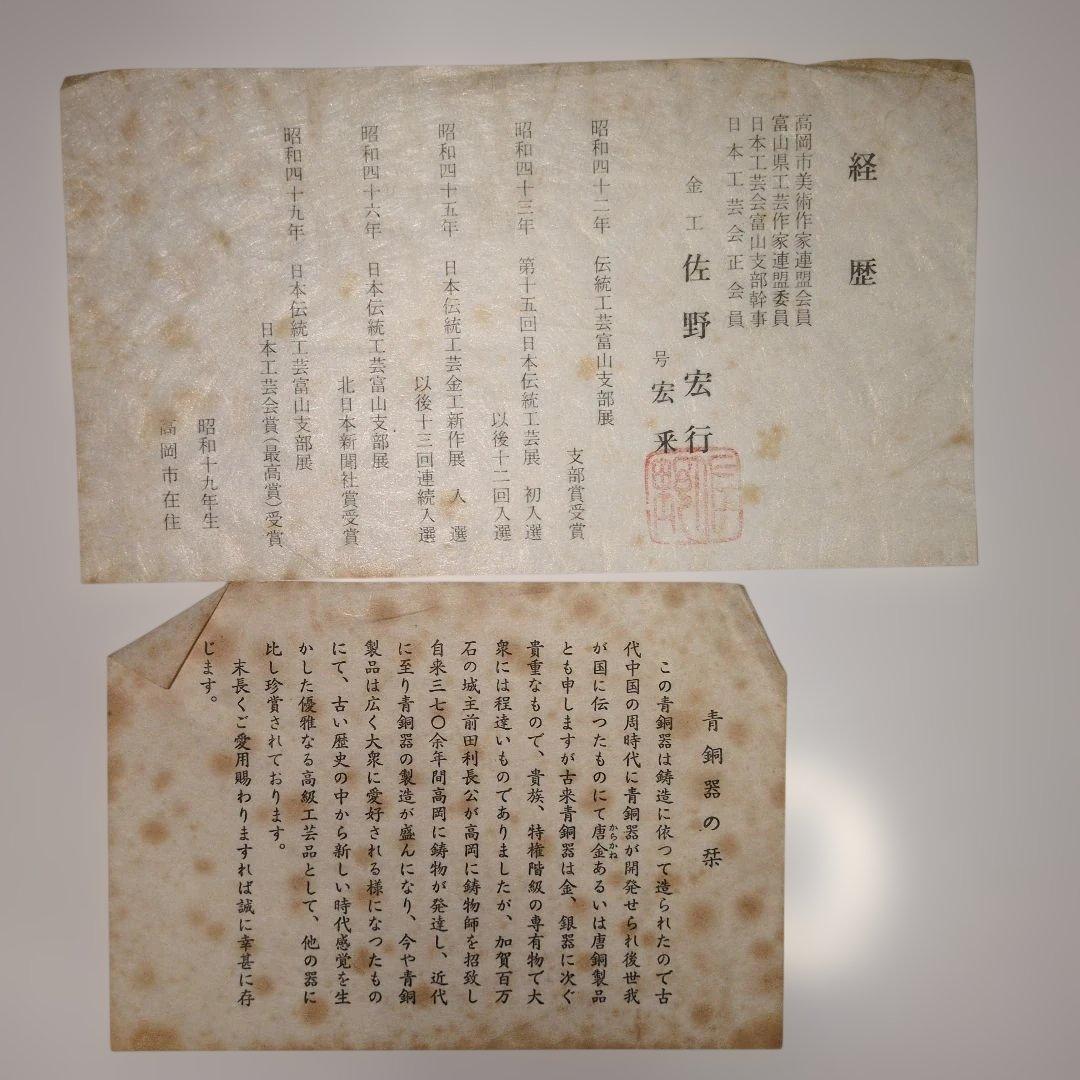 経歴
高岡市美術作家連盟会員
富山県工芸作家連盟委員
日本工芸会富山支部幹事
日本工芸会正会員
金工 佐野宏行
号 宏采
昭和四十二年 伝統工芸富山支部展
支部賞受賞
昭和四十三年 第十五回日本伝統工芸展 初入選
以後十二回入選
昭和四十五年 日本伝統工芸金工新作展 入選
以後十三回連続入選
昭和四十六年 日本伝統工芸富山支部展
北日本新聞社賞受賞
昭和四十九年 日本伝統工芸富山支部展
日本工芸会賞(最高賞)受賞
昭和十九年生
高岡市在住
青銅器の栞
この青銅器は鋳造に依つて造られたので古
代中国の周時代に青銅器が開発せられ後世我
が国に伝つたものにて唐金あるいは唐銅製品
からかね
とも申しますが古来青銅器は金、銀器に次ぐ
貴重なもので、貴族、特権階級の専有物で大
衆には程遠いものでありましたが、加賀百万
石の城主前田利長公が高岡に鋳物師を招致し
自来三七〇余年間高岡に鋳物が発達し、近代
に至り青銅器の製造が盛んになり、今や青銅
製品は広く大衆に愛好される様になつたもの
にて、古い歴史の中から新しい時代感覚を生
かした優雅なる高級工芸品として、他の器に
比し珍賞されております。
末長くご愛用賜わりますれば誠に幸甚に存
じます。